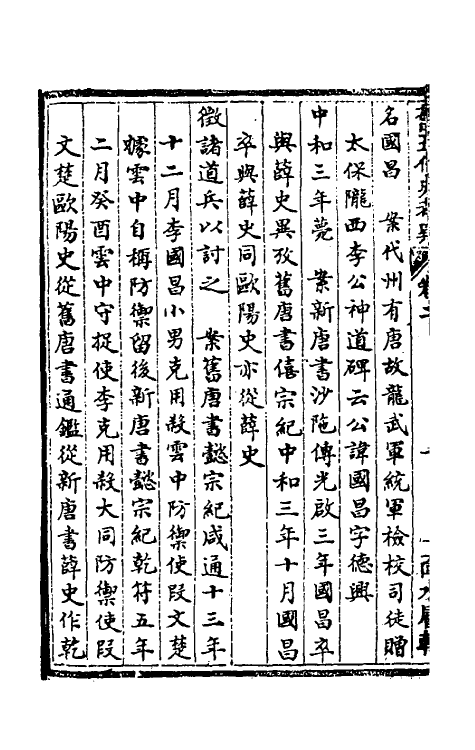 名國昌　案代州有唐故龍武軍統軍檢校司徒贈
太保隴西李公神道碑云公諱國昌字德興
中和三年薨　案新唐書沙陁傳光啟三年國昌卒
與薛史異攷舊唐書僖宗紀中和三年十月國昌
卒與薛史同歐陽史亦從薛史
徵諸道兵以討之　案舊唐書懿宗紀咸通十三年
十二月李國昌小男克用殺雲中防禦使段文楚
據雲中自稱防禦留後新唐書懿宗紀乾符五年
二月癸酉雲中守捉使李克用殺大同防禦使段
文楚歐陽史從舊唐書通鑑從新唐書薛史作乾